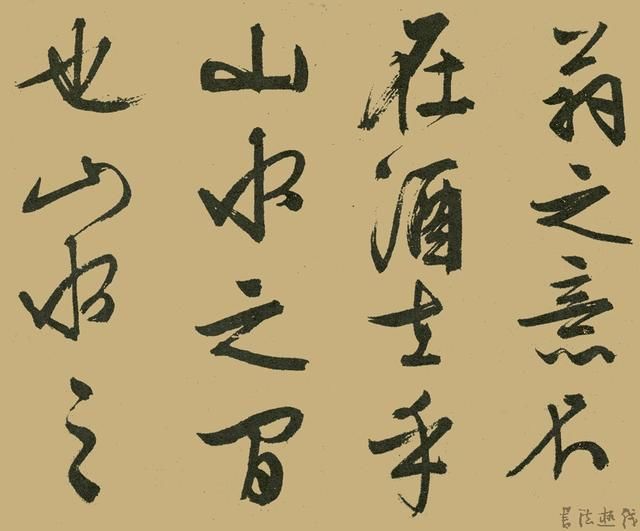 翁之意不
在酒在乎
山水之間
也山水之